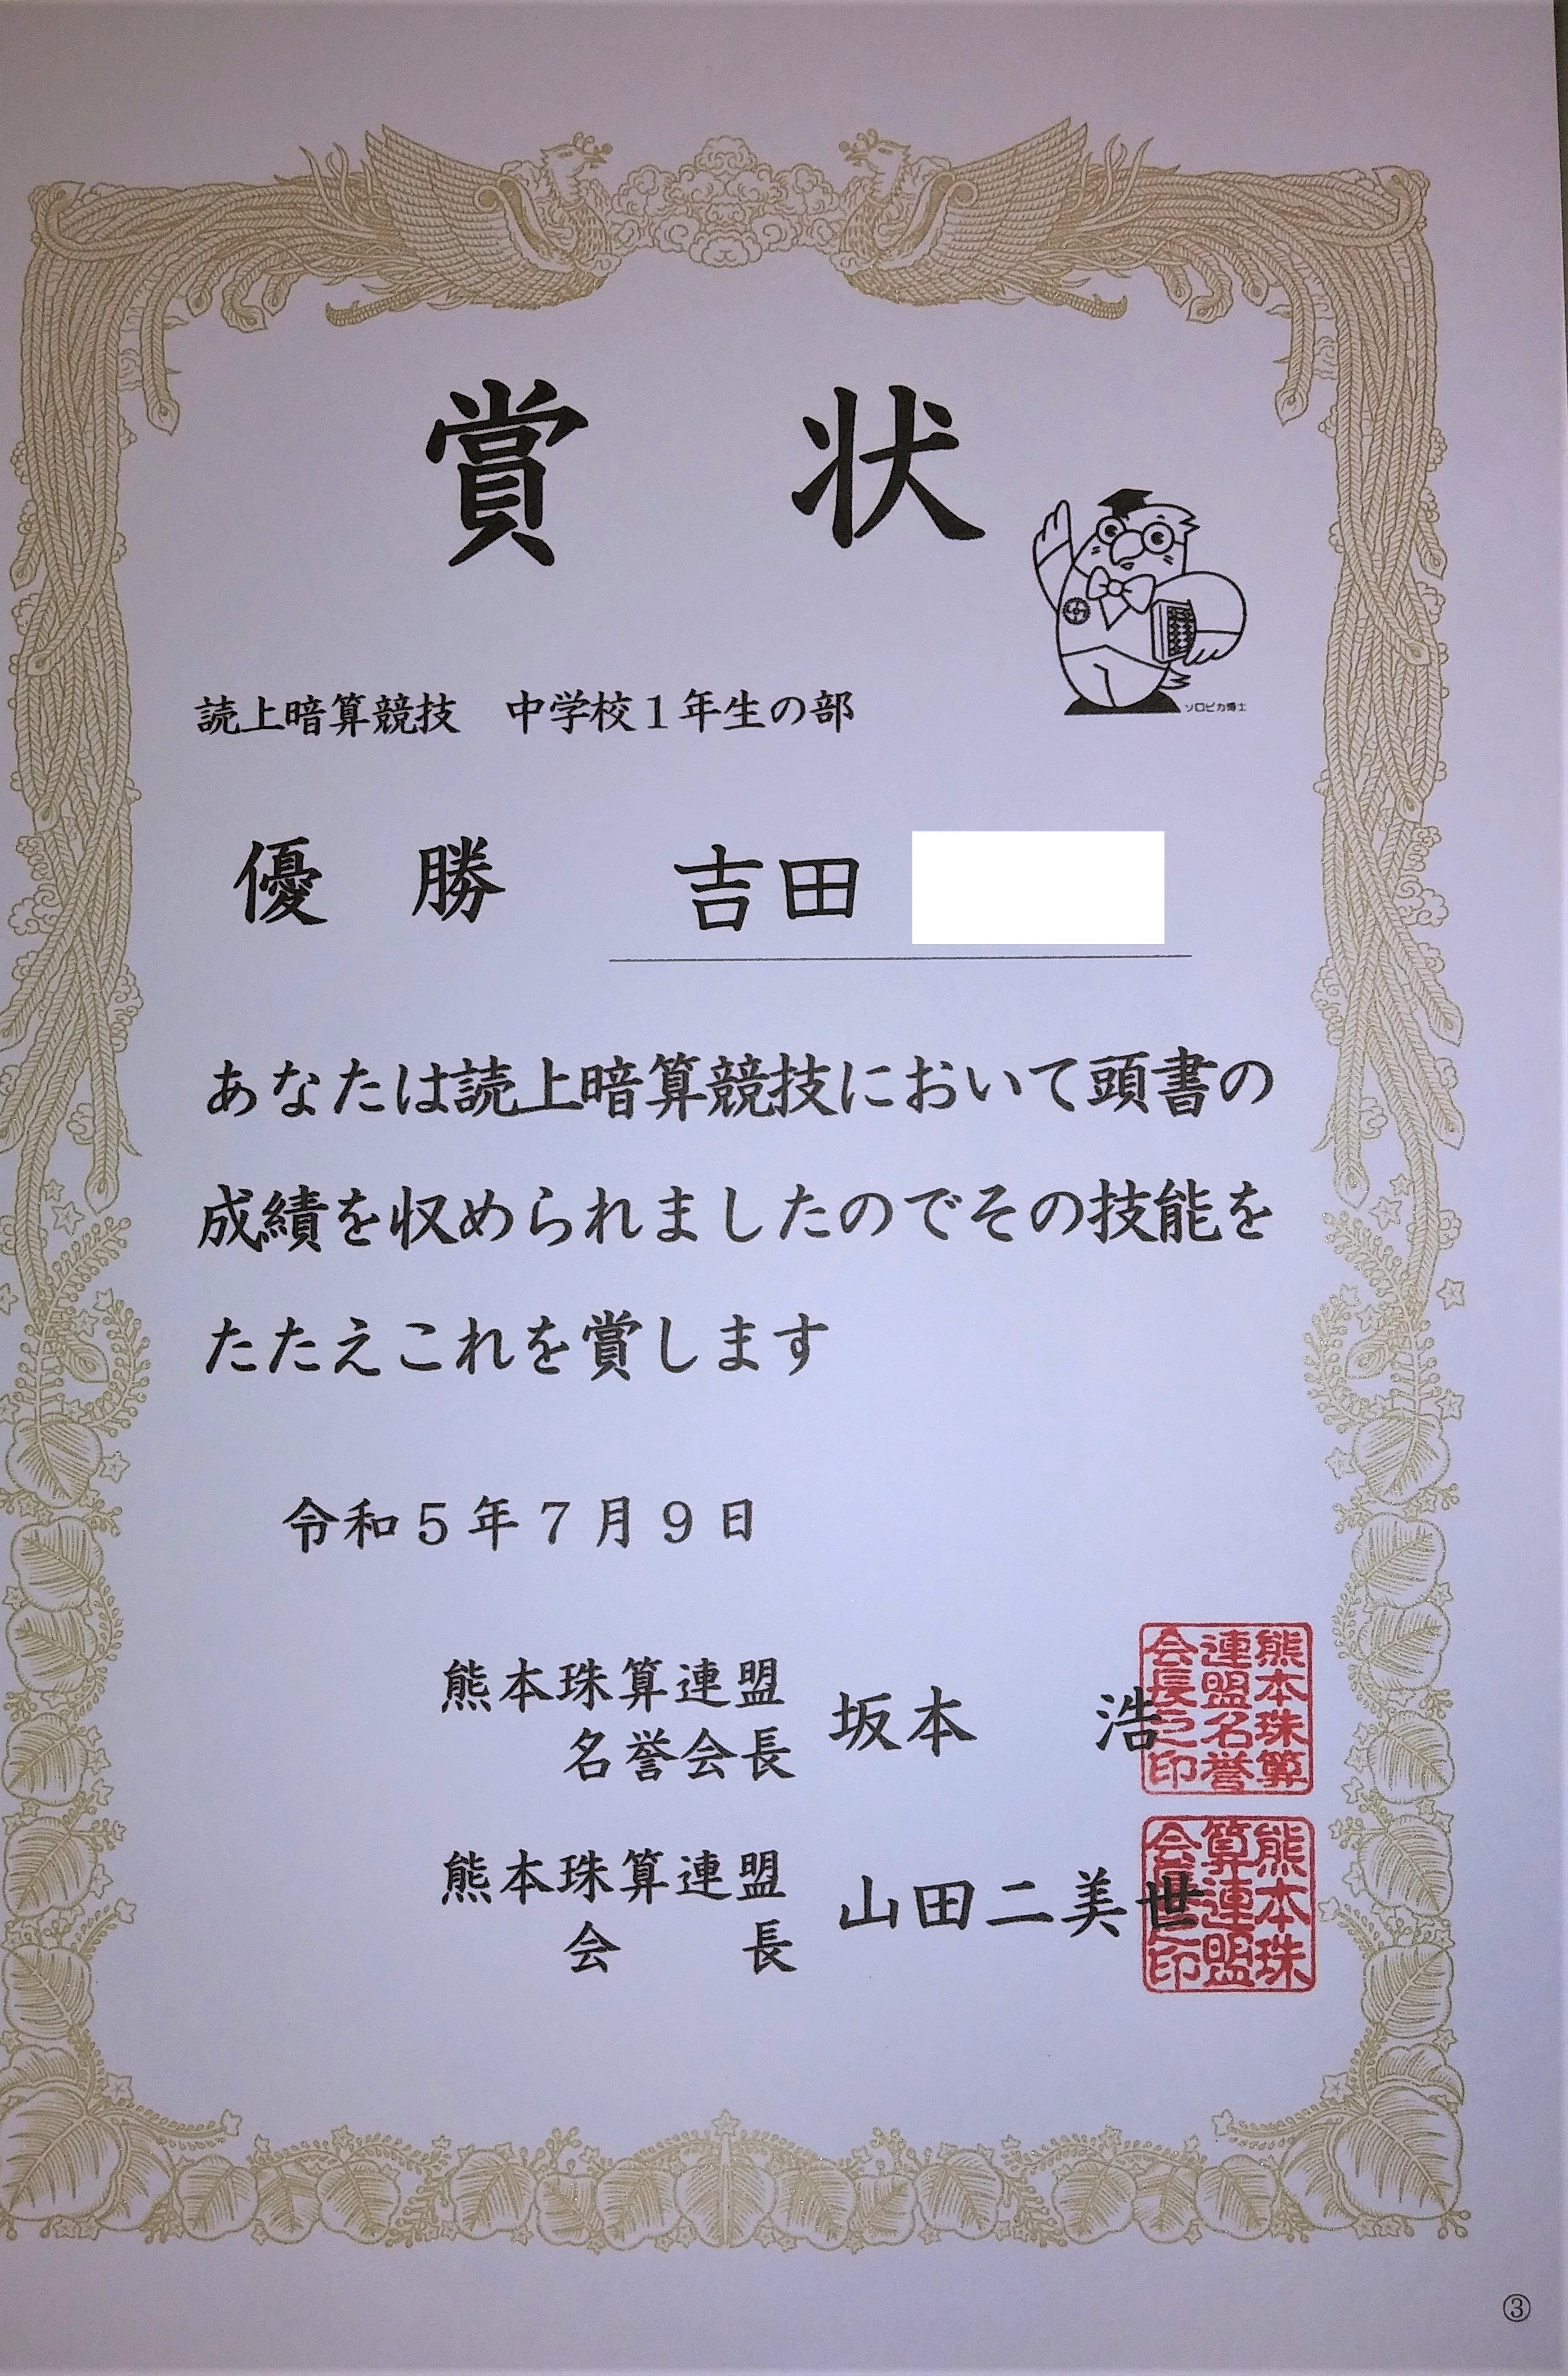 賞 状
ソロピカ博士
読上暗算競技 中学校1年生の部
優 勝 吉田
あなたは読上暗算競技において頭書の
成績を収められましたのでその技能を
たたえこれを賞します
令和5年7月9日
熊本珠算連盟
名誉会長 坂本 浩
熊本珠算連盟名誉会長之印
熊本珠算連盟
会 長 山田二美世
熊本珠算連盟会長之印
③